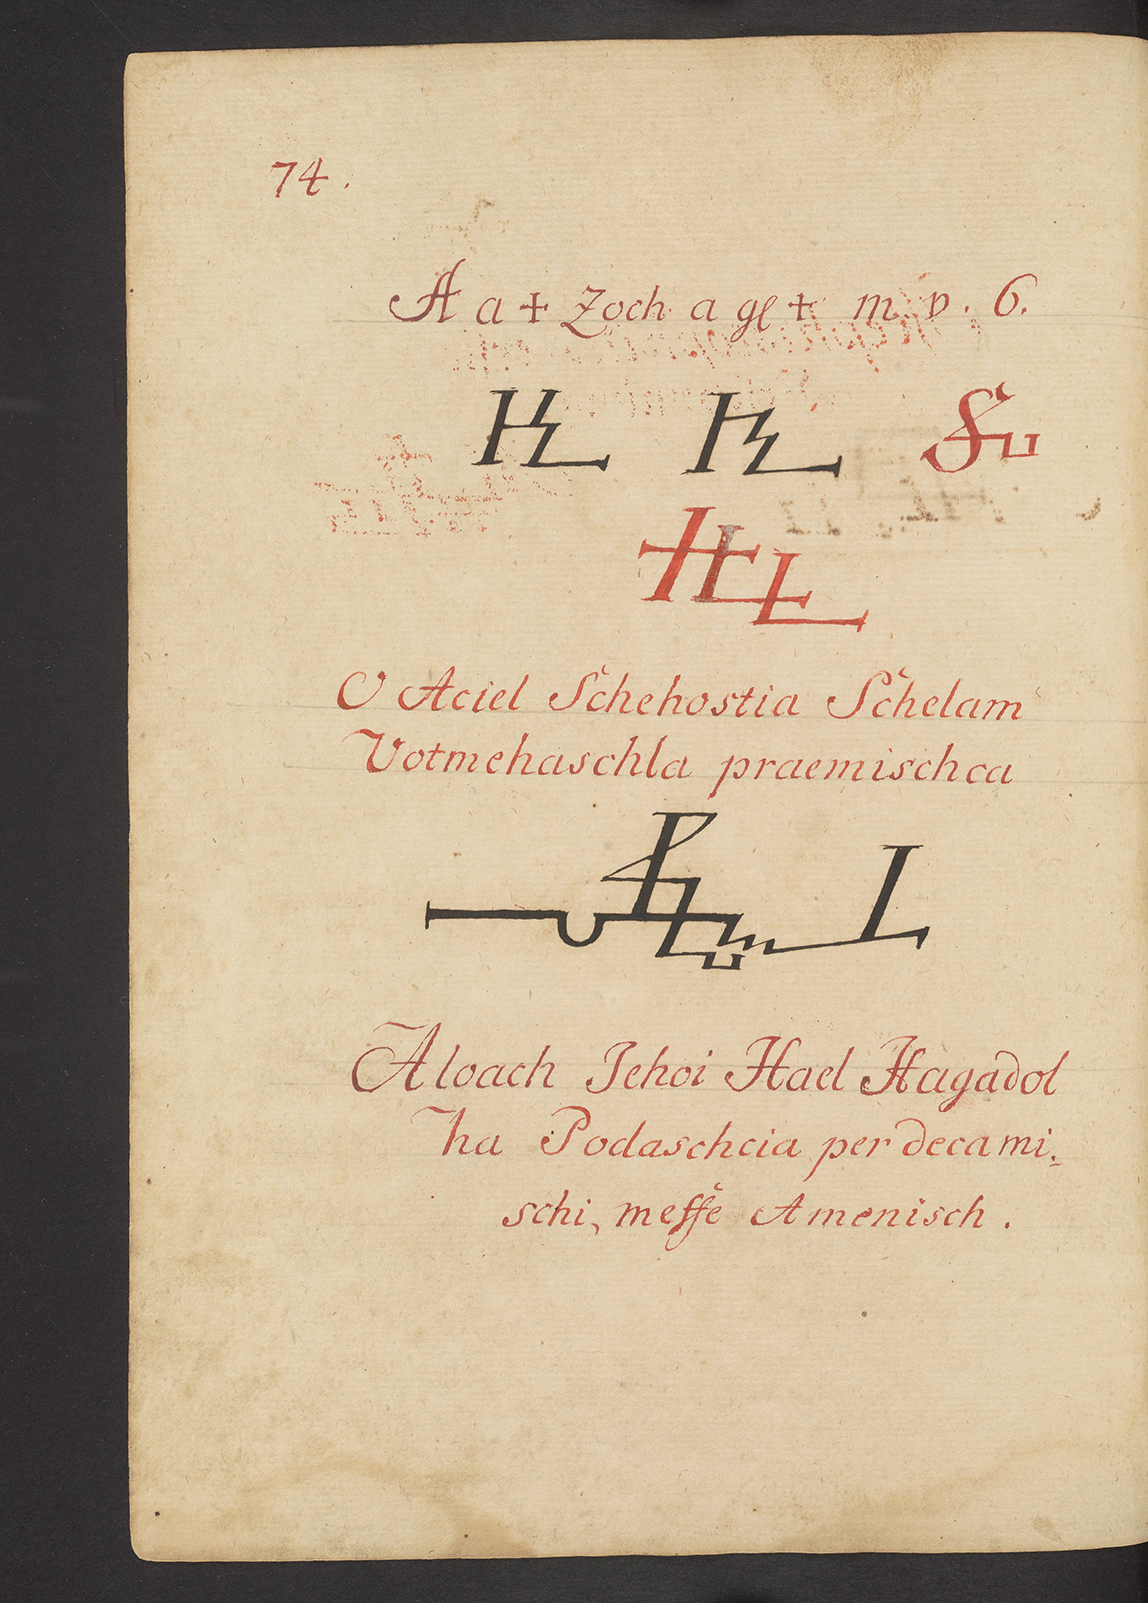 74.
A a + Zoch a gl + m. v. 6.
O Aciel Schehostia Schelam
Votmehaschla praemischca
Aloach Jehoi Hael Hagadol
ha Podaschcia per decami:
schi, messe Amenisch.